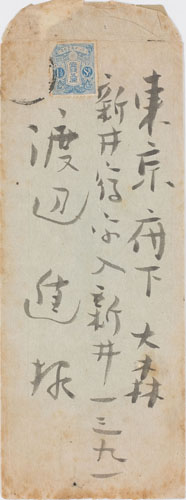 東京府下大森
新井宿字入新井一三九一
渡辺進様